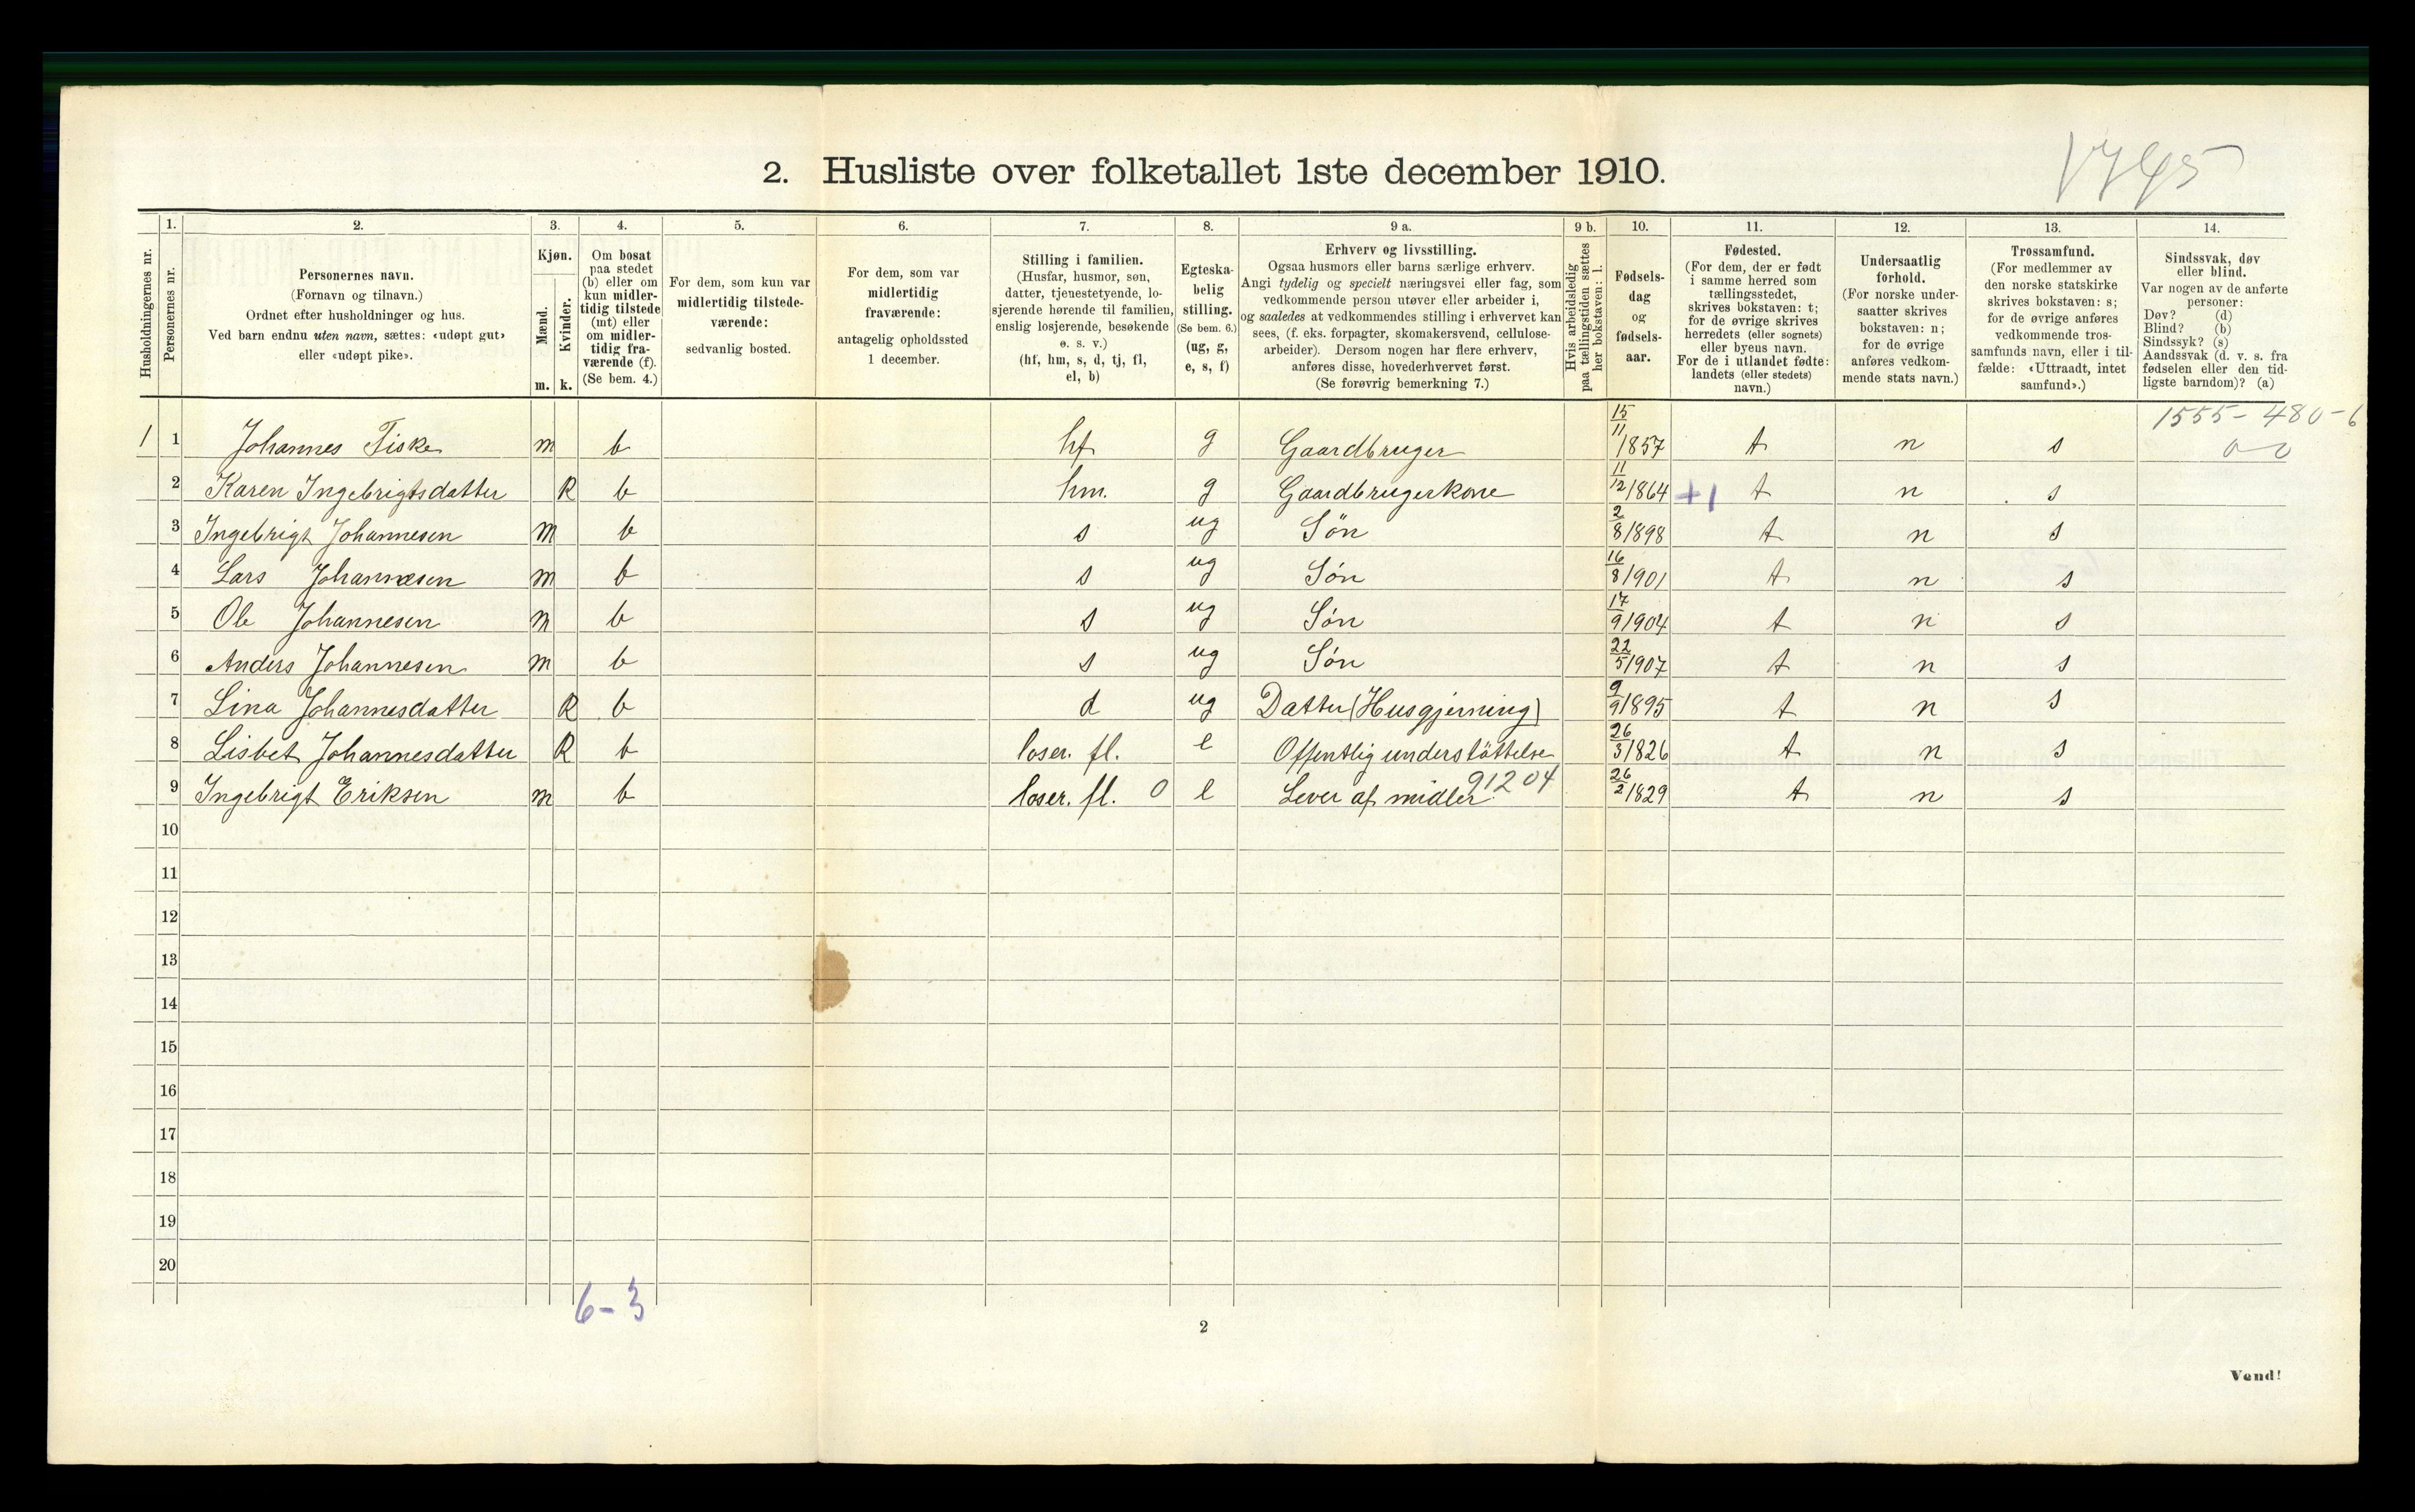 2. Husliste over folketallet 1ste december 1910.
Husholdningernes nr.
1.
Personernes nr.
2.
Personernes navn.
(Fornavn og tilnavn.)
Ordnet efter husholdninger og hus.
Ved barn endnu uten navn, sættes: «udøpt gut»
eller «udøpt pike».
3.
Kjøn.
Mænd.
Kvinder.
m. k.
4.
Om bosat
paa stedet
(b) eller om
kun midler-
tidig tilstede
(mt) eller
om midler-
tidig fra-
værende (f).
(Se bem. 4.)
5.
For dem, som kun var
midlertidig tilstede-
værende:
sedvanlig bosted.
6.
For dem, som var
midlertidig
fraværende:
antagelig opholdssted
1 december.
7.
Stilling i familien.
(Husfar, husmor, søn,
datter, tjenestetyende, lo-
sjerende hørende til familien,
enslig losjerende, besøkende
o. s. v.)
(hf, hm, s, d, tj, fl,
el, b)
8.
Egteska-
belig
stilling.
(Se bem. 6.)
(ug, g,
e, s, f)
9 a.
Erhverv og livsstilling.
Ogsaa husmors eller barns særlige erhverv.
Angi tydelig og specielt næringsvei eller fag, som
vedkommende person utøver eller arbeider i,
og saaledes at vedkommendes stilling i erhvervet kan
sees, (f. eks. forpagter, skomakersvend, cellulose-
arbeider). Dersom nogen har flere erhverv,
anføres disse, hovederhvervet først.
(Se forøvrig bemerkning 7.)
9 b.
Hvis arbeidsledig
paa tællingstiden sættes
her bokstaven: l.
10.
Fødsels-
dag
og
fødsels-
aar.
11.
Fødested.
(For dem, der er født
i samme herred som
tællingsstedet,
skrives bokstaven: t;
for de øvrige skrives
herredets (eller sognets)
eller byens navn.
For de i utlandet fødte:
landets (eller stedets)
navn.)
12.
Undersaatlig
forhold.
(For norske under-
saatter skrives
bokstaven: n;
for de øvrige
anføres vedkom-
mende stats navn.)
13.
Trossamfund.
(For medlemmer av
den norske statskirke
skrives bokstaven: s;
for de øvrige anføres
vedkommende tros-
samfunds navn, eller i til-
fælde: «Uttraadt, intet
samfund».)
14.
Sindssvak, døv
eller blind.
Var nogen av de anførte
personer:
Døv? (d)
Blind? (b)
Sindssyk? (s)
Aandssvak (d. v. s. fra
fødselen eller den tid-
ligste barndom)? (a)
1555-480-6
0 0
1 1 Johannes Fiske m b hf g Gaardbruger 15/11 1857 t n s
2 Karen Ingebrigtsdatter k b hm. g Gaardbrugerkone 11/12 1864 +1 t n s
3 Ingebrigt Johannesen m b s ug Sön 2/8 1898 t n s
4 Lars Johannesen m b s ug Sön 16/8 1901 t n s
5 Ole Johannesen m b s ug Sön 17/9 1904 t n s
6 Anders Johannesen m b s ug Sön 22/5 1907 t n s
7 Lina Johannesdatter k b d ug Datter (Husgjerning) 9/9 1895 t n s
8 Lisbet Johannesdatter k b loser. fl. e Offentlig understöttelse 26/3 1826 t n s
9 Ingebrigt Eriksen m b loser. fl. 0 e Lever af midler 91204 26/2 1829 t n s
10
11
12
13
14
15
16
17
18
19
20
6-3
2
Vend!